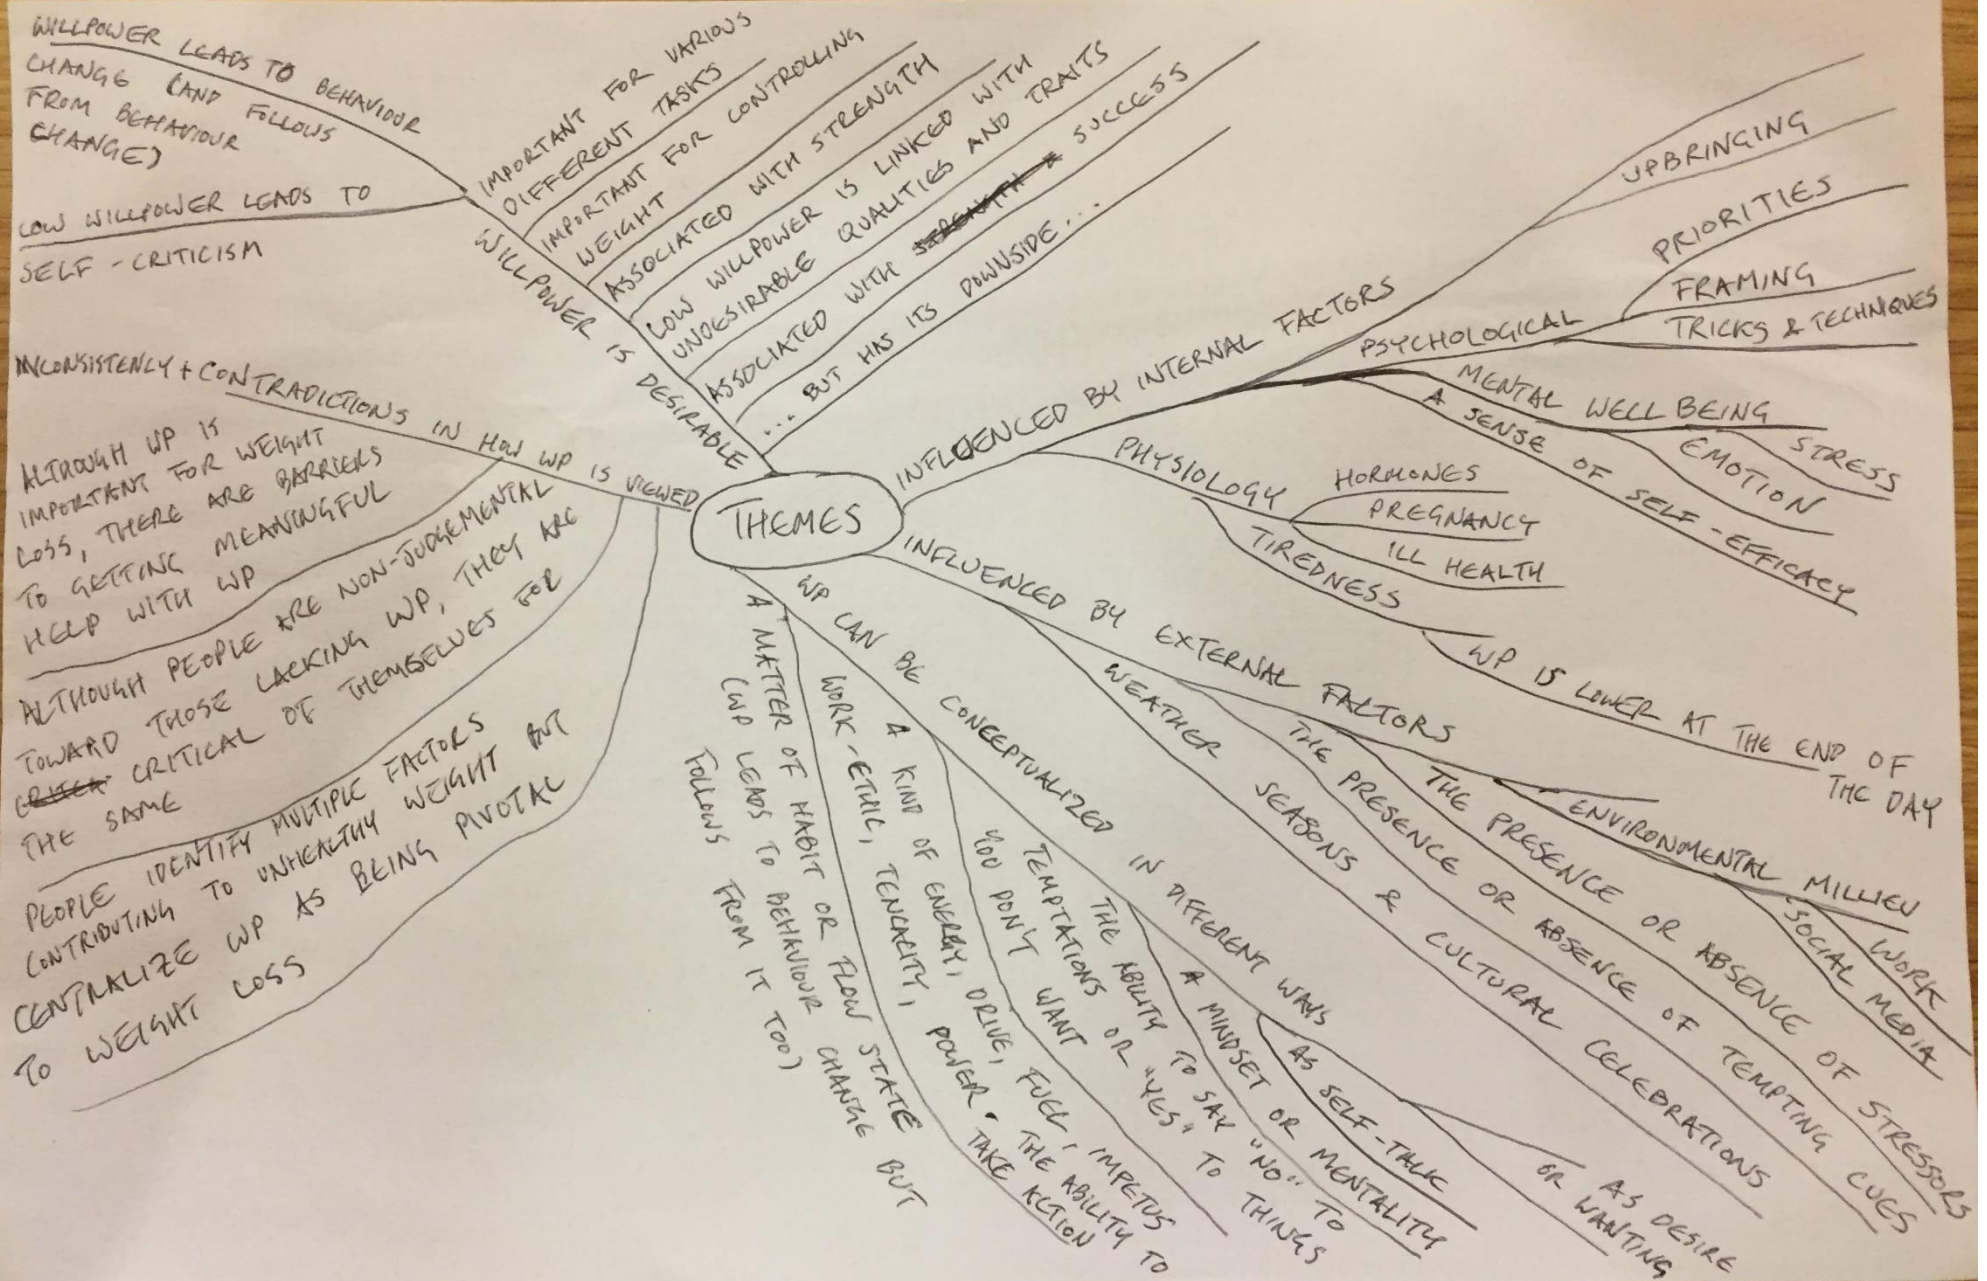 THEMES
WILLPOWER IS DESIRABLE
WILLPOWER LEADS TO BEHAVIOUR
CHANGE (AND FOLLOWS
FROM BEHAVIOUR
CHANGE)
LOW WILLPOWER LEADS TO
SELF-CRITICISM
IMPORTANT FOR VARIOUS
DIFFERENT TASKS
IMPORTANT FOR CONTROLLING
WEIGHT
ASSOCIATED WITH STRENGTH
LOW WILLPOWER IS LINKED WITH
UNDESIRABLE QUALITIES AND TRAITS
ASSOCIATED WITH STRENGTH SUCCESS
... BUT HAS ITS DOWNSIDE...
INFLUENCED BY INTERNAL FACTORS
UPBRINGING
PSYCHOLOGICAL
PRIORITIES
FRAMING
TRICKS & TECHNIQUES
MENTAL WELLBEING
STRESS
EMOTION
A SENSE OF SELF-EFFICACY
PHYSIOLOGY
HORMONES
PREGNANCY
ILL HEALTH
TIREDNESS
WP IS LOWER AT THE END OF
THE DAY
INFLUENCED BY EXTERNAL FACTORS
ENVIRONMENTAL MILLIEU
WORK
SOCIAL MEDIA
THE PRESENCE OR ABSENCE OF STRESSORS
THE PRESENCE OR ABSENCE OF TEMPTING CUES
WEATHER SEASONS & CULTURAL CELEBRATIONS
WP CAN BE CONCEPTUALIZED IN DIFFERENT WAYS
AS DESIRE
OR WANTING
AS SELF-TALK
A MINDSET OR MENTALITY
THE ABILITY TO SAY "NO" TO
TEMPTATIONS OR "YES" TO THINGS
YOU DON'T WANT
A KIND OF ENERGY, DRIVE, FUEL, IMPETUS
WORK-ETHIC, TENCALITY, POWER. THE ABILITY TO
TAKE ACTION
A MATTER OF HABIT OR FLOW STATE
(WP LEADS TO BEHAVIOUR CHANGE BUT
FOLLOWS FROM IT TOO)
INCONSISTENCY + CONTRADICTIONS IN HOW WP IS VIEWED
ALTHOUGH WP IS
IMPORTANT FOR WEIGHT
LOSS, THERE ARE BARRIERS
TO GETTING MEANINGFUL
HELP WITH WP
ALTHOUGH PEOPLE ARE NON-JUDGEMENTAL
TOWARD THOSE LACKING WP, THEY ARE
CRITICAL OF THEMSELVES FOR
THE SAME
PEOPLE IDENTIFY MULTIPLE FACTORS
CONTRIBUTING TO UNHEALTHY WEIGHT BUT
CENTRALIZE WP AS BEING PIVOTAL
TO WEIGHT LOSS